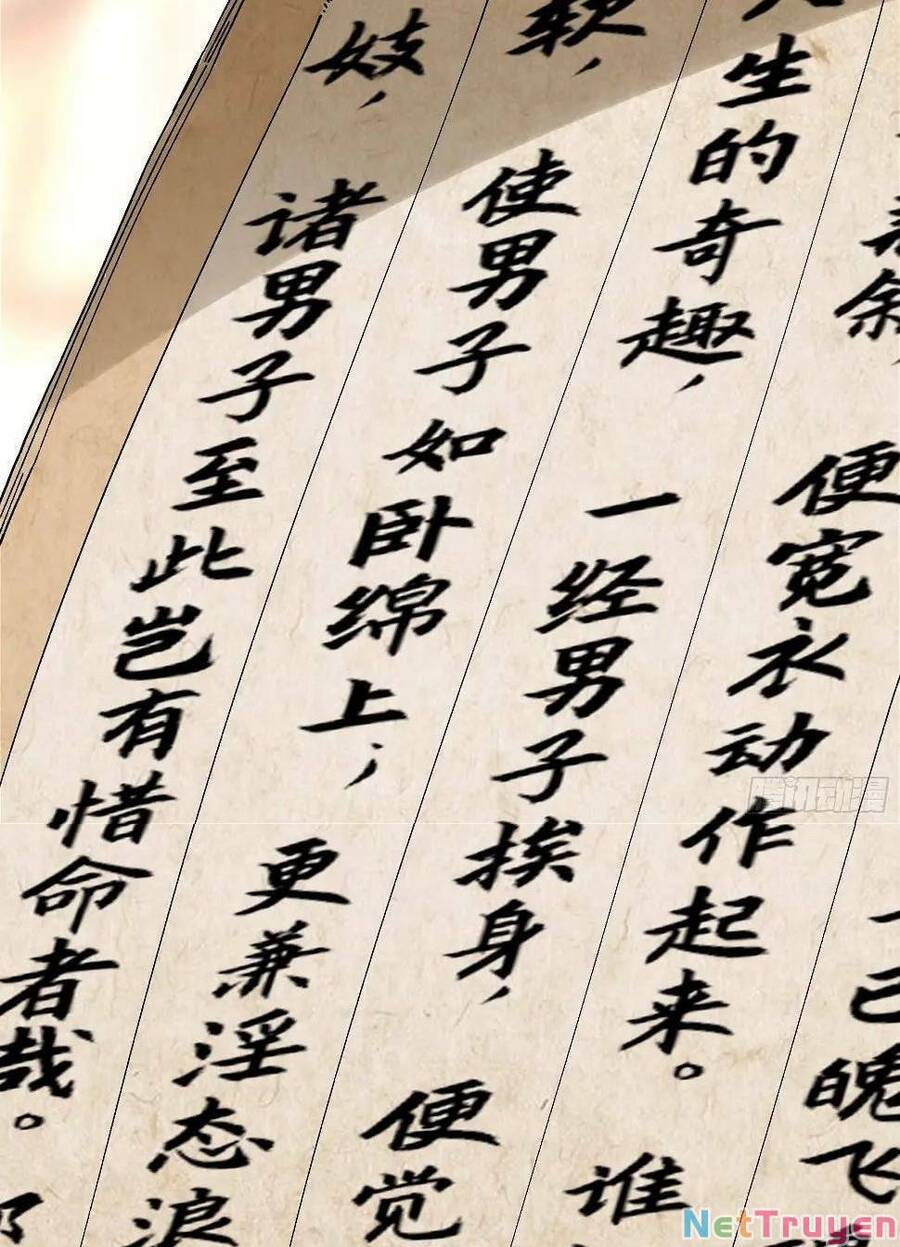 己魄飞
叙,便宽衣动作起来。谁
生的奇趣,一经男子挨身,便觉
软,使男子如卧绵上;更兼淫态浪
妓,诸男子至此岂有惜命者哉。
腾讯动漫
NetTruyen